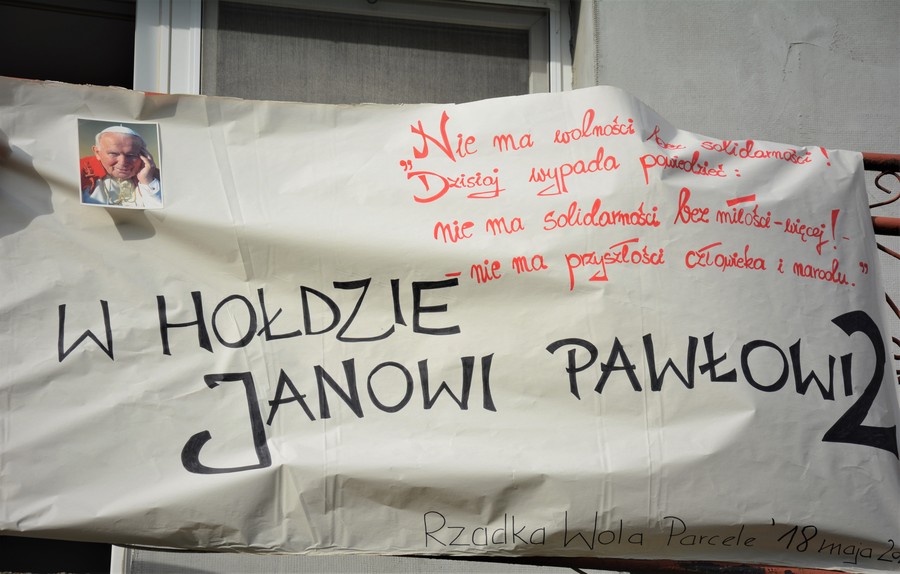 „Nie ma wolności bez solidarności!
Dzisiaj wypada powiedzieć:
nie ma solidarności bez miłości - więcej! -
- nie ma przyszłości człowieka i narodu."
W HOŁDZIE
JANOWI PAWŁOWI 2
Rządka Wola Parcele '18 maja